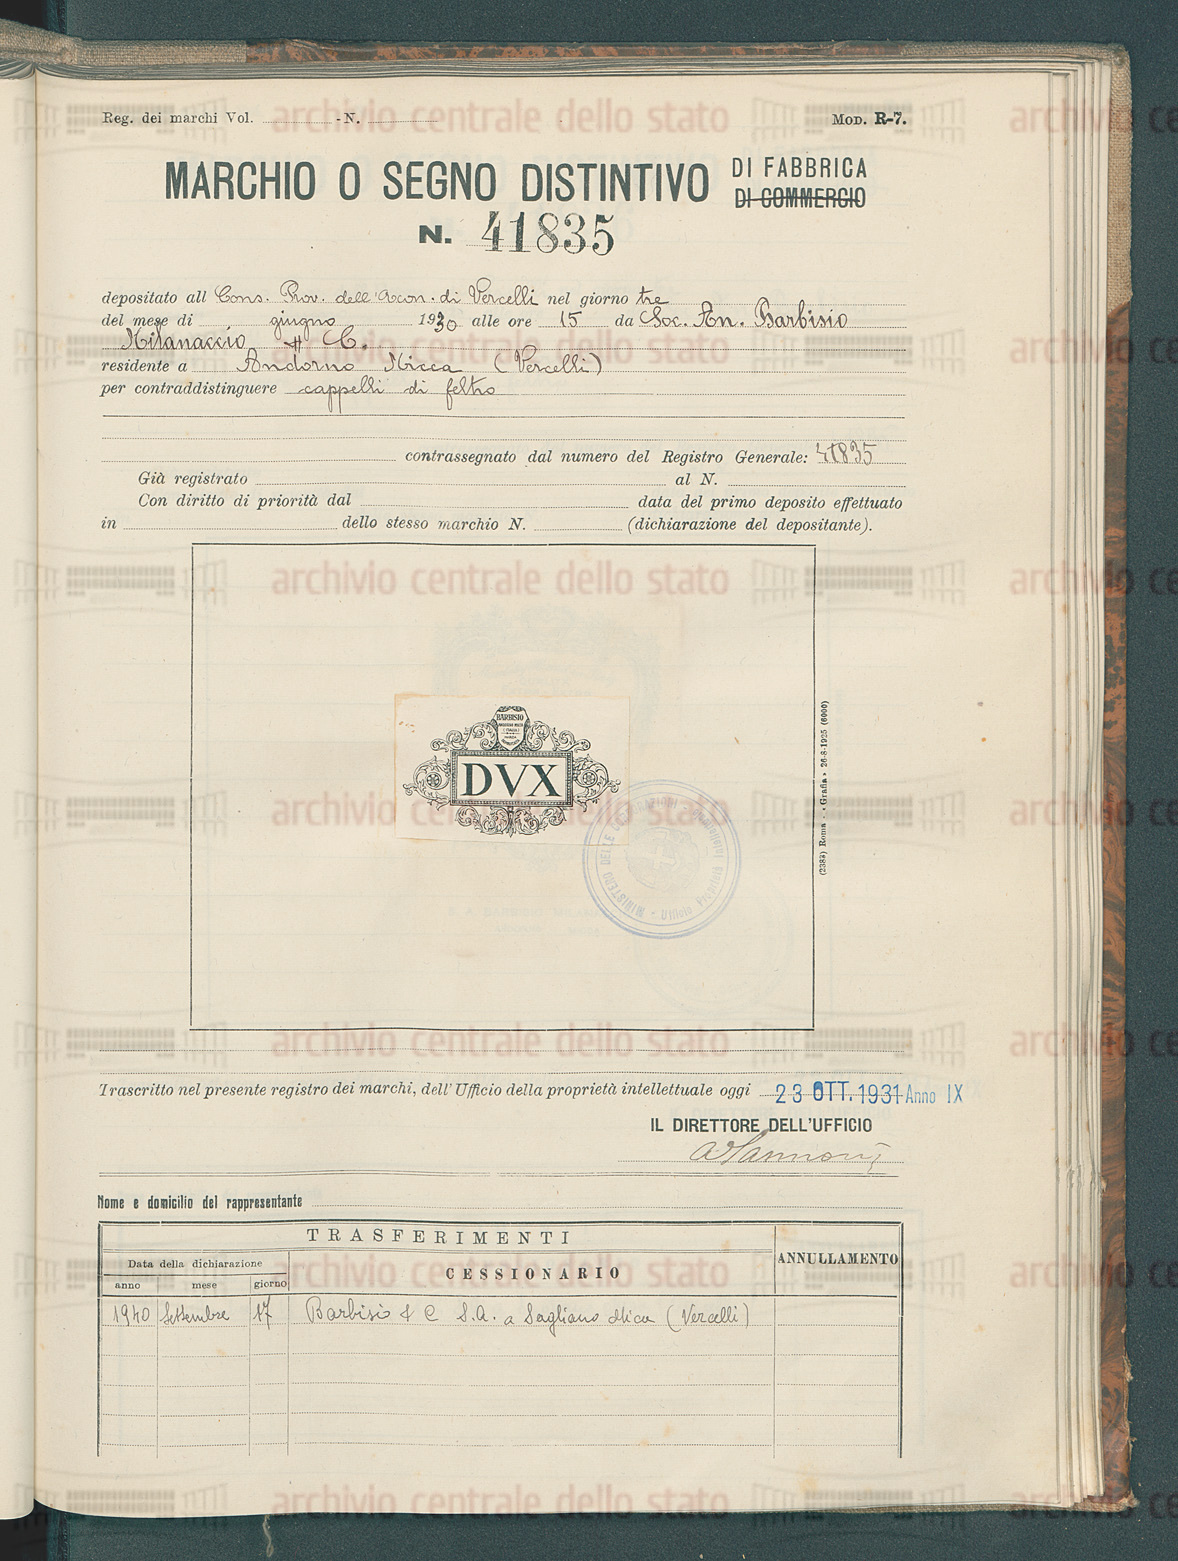 Reg. dei marchi Vol. - N. MOD. R-7.
MARCHIO O SEGNO DISTINTIVO DI FABBRICA
DI COMMERCIO
N. 41835
depositato all Cons. Prov. dell'Econ. di Vercelli nel giorno tre
del mese di giugno 1930 alle ore 15 da Soc. An. Barbisio
Milanaccio & C.
residente a Andorno Micca (Vercelli)
per contraddistinguere cappelli di feltro
contrassegnato dal numero del Registro Generale: 41835
Già registrato al N.
Con diritto di priorità dal data del primo deposito effettuato
in dello stesso marchio N. (dichiarazione del depositante).
BARBISIO
DVX
MINISTERO DELLE CORPORAZIONI
Ufficio Proprietà
(2383) Roma - «Grafia» 26-8-1925 (6000)
Trascritto nel presente registro dei marchi, dell'Ufficio della proprietà intellettuale oggi 23 OTT. 1931 Anno IX
IL DIRETTORE DELL'UFFICIO
Nome e domicilio del rappresentante
TRASFERIMENTI
Data della dichiarazione
anno mese giorno
CESSIONARIO
ANNULLAMENTO
1940 Settembre 17 Barbisio & C S.A. a Sagliano Mica (Vercelli)
archivio centrale dello stato